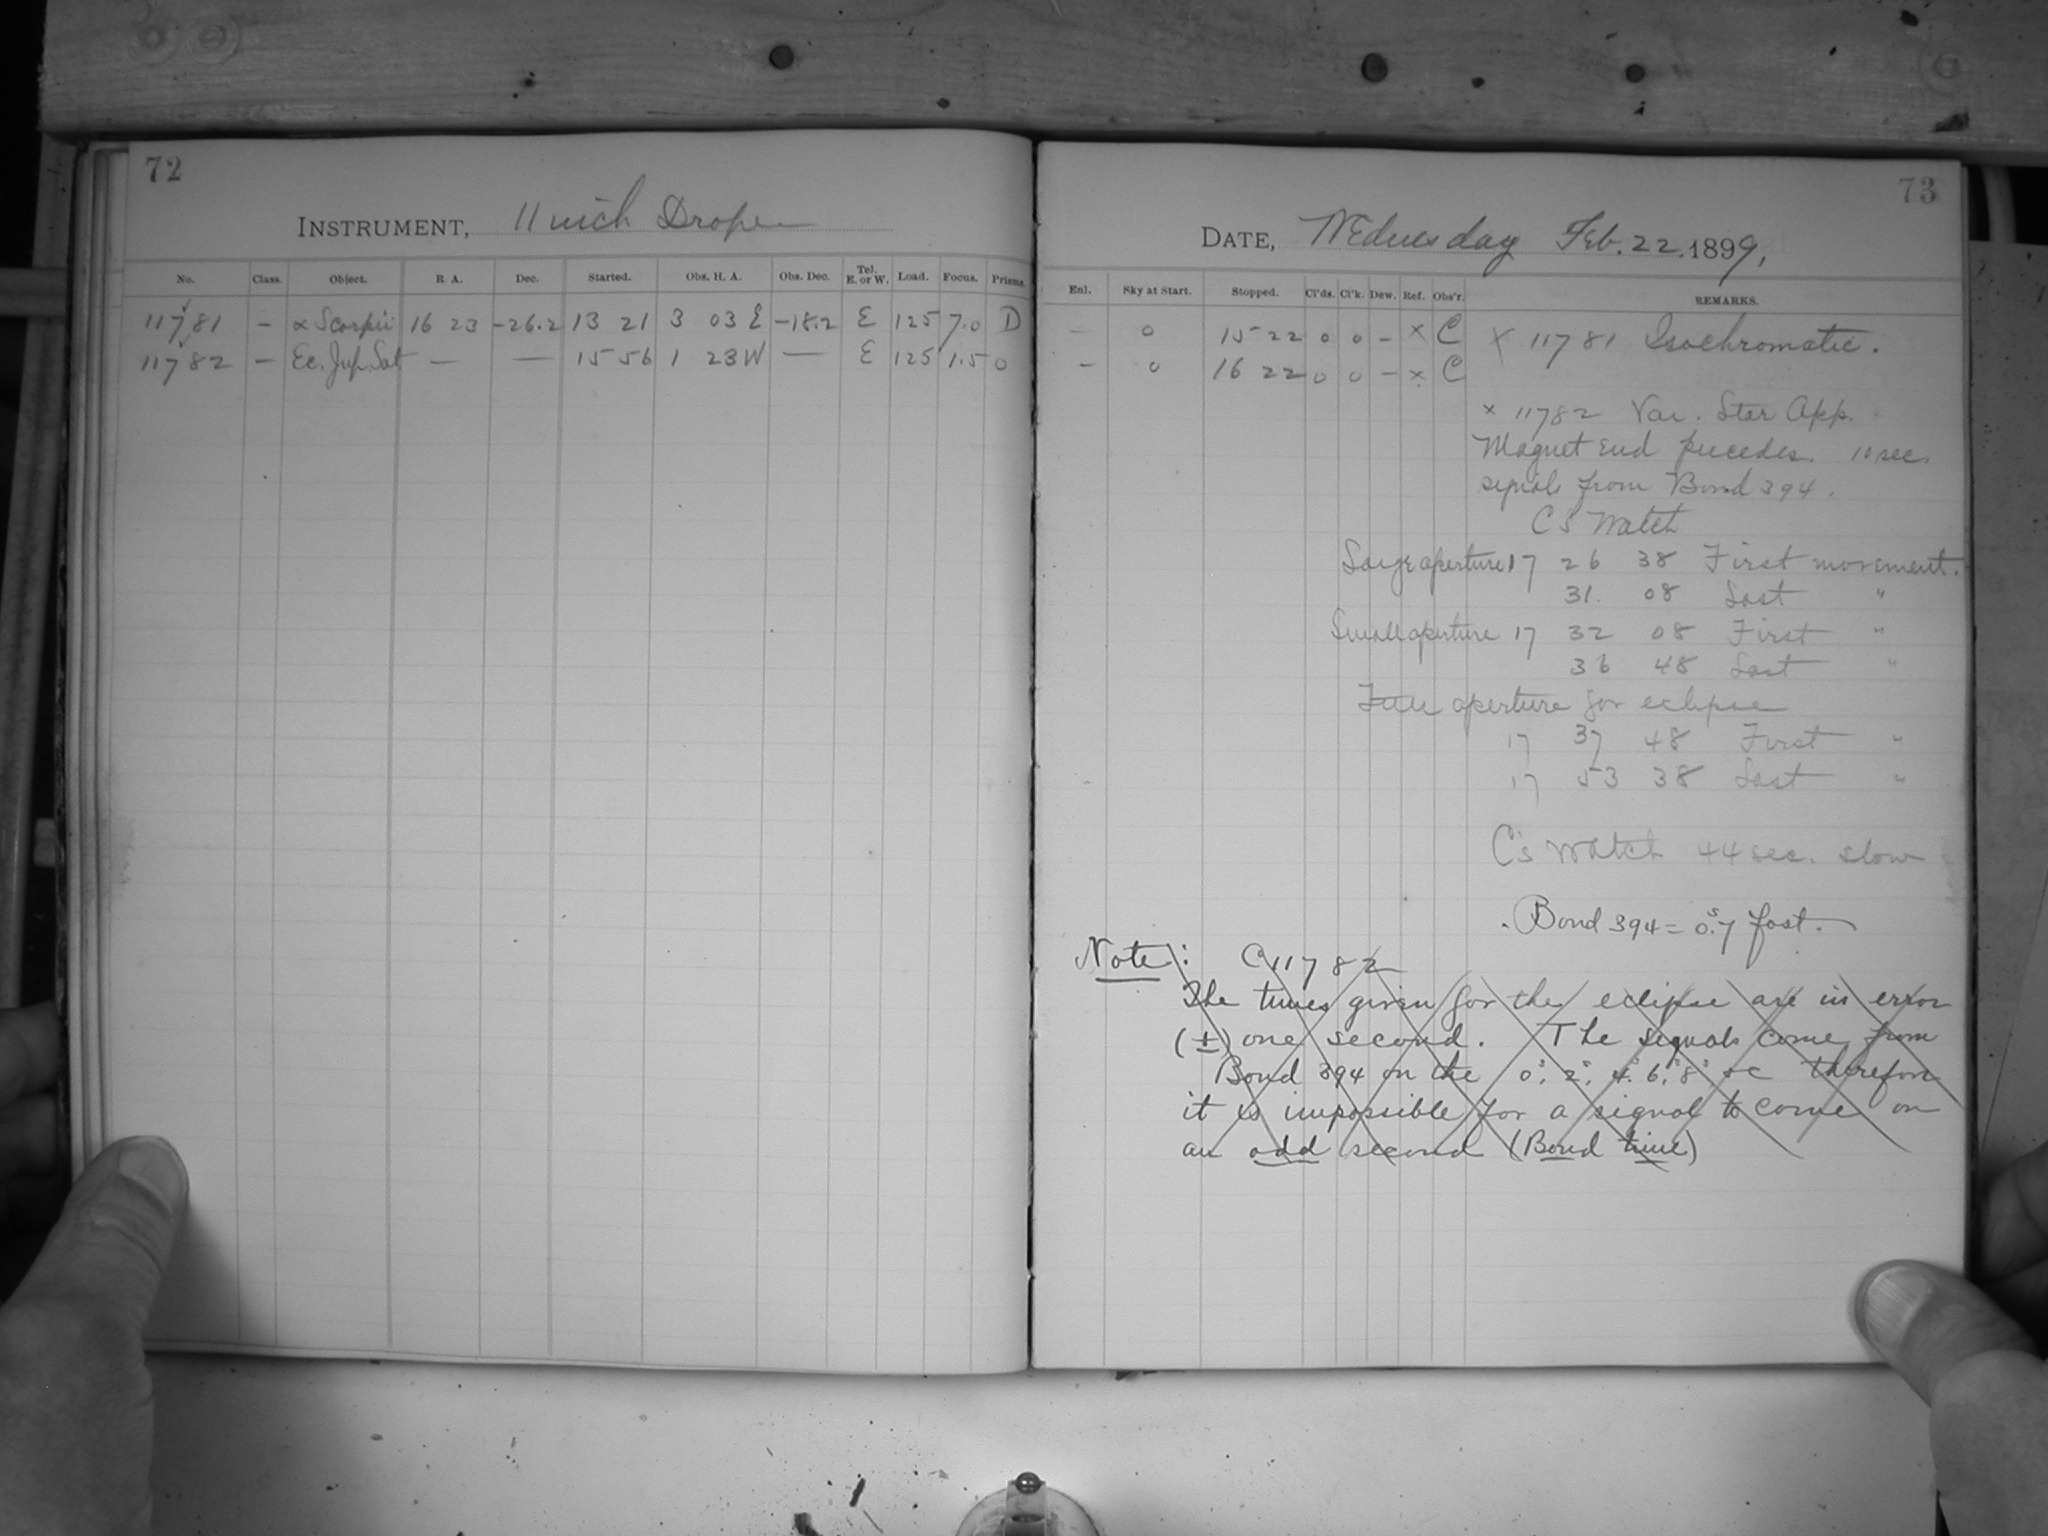 72
INSTRUMENT, 11 inch Draper
No. Class. Object. R. A. Dec. Started. Obs. H. A. Obs. Dec. Tel. E. or W. Load. Focus. Prisms.
11781 – α Scorpii 16 23 -26.2 13 21 3 03 E -18.2 E 125 7.0 D
11782 – Ec. Jup. Sat — — 15 56 1 23 W — E 125 1.5 0
73
DATE, Wednesday Feb. 22. 1899,
Enl. Sky at Start. Stopped. Cl'ds. Cl'k. Dew. Ref. Obs'r. REMARKS.
– 0 15 22 0 0 – × C × 11781 Isochromatic.
– 0 16 22 0 0 – × C
× 11782 Var. Star App.
Magnet End precedes. 10 sec.
signals from Bond 394.
C's Watch
Large aperture 17 26 38 First movement.
31. 08 Last "
Small aperture 17 32 08 First "
36 48 Last "
aperture for eclipse
17 37 48 First "
17 53 38 Last "
C's Watch 44 sec. slow
Bond 394 = 0.s7 fast.
Note: C 11782
The times given for the eclipse are in error
(±) one second. The signals come from
Bond 394 on the 0s, 2s, 4s, 6s, 8s &c therefore
it is impossible for a signal to come on
an odd second (Bond time)